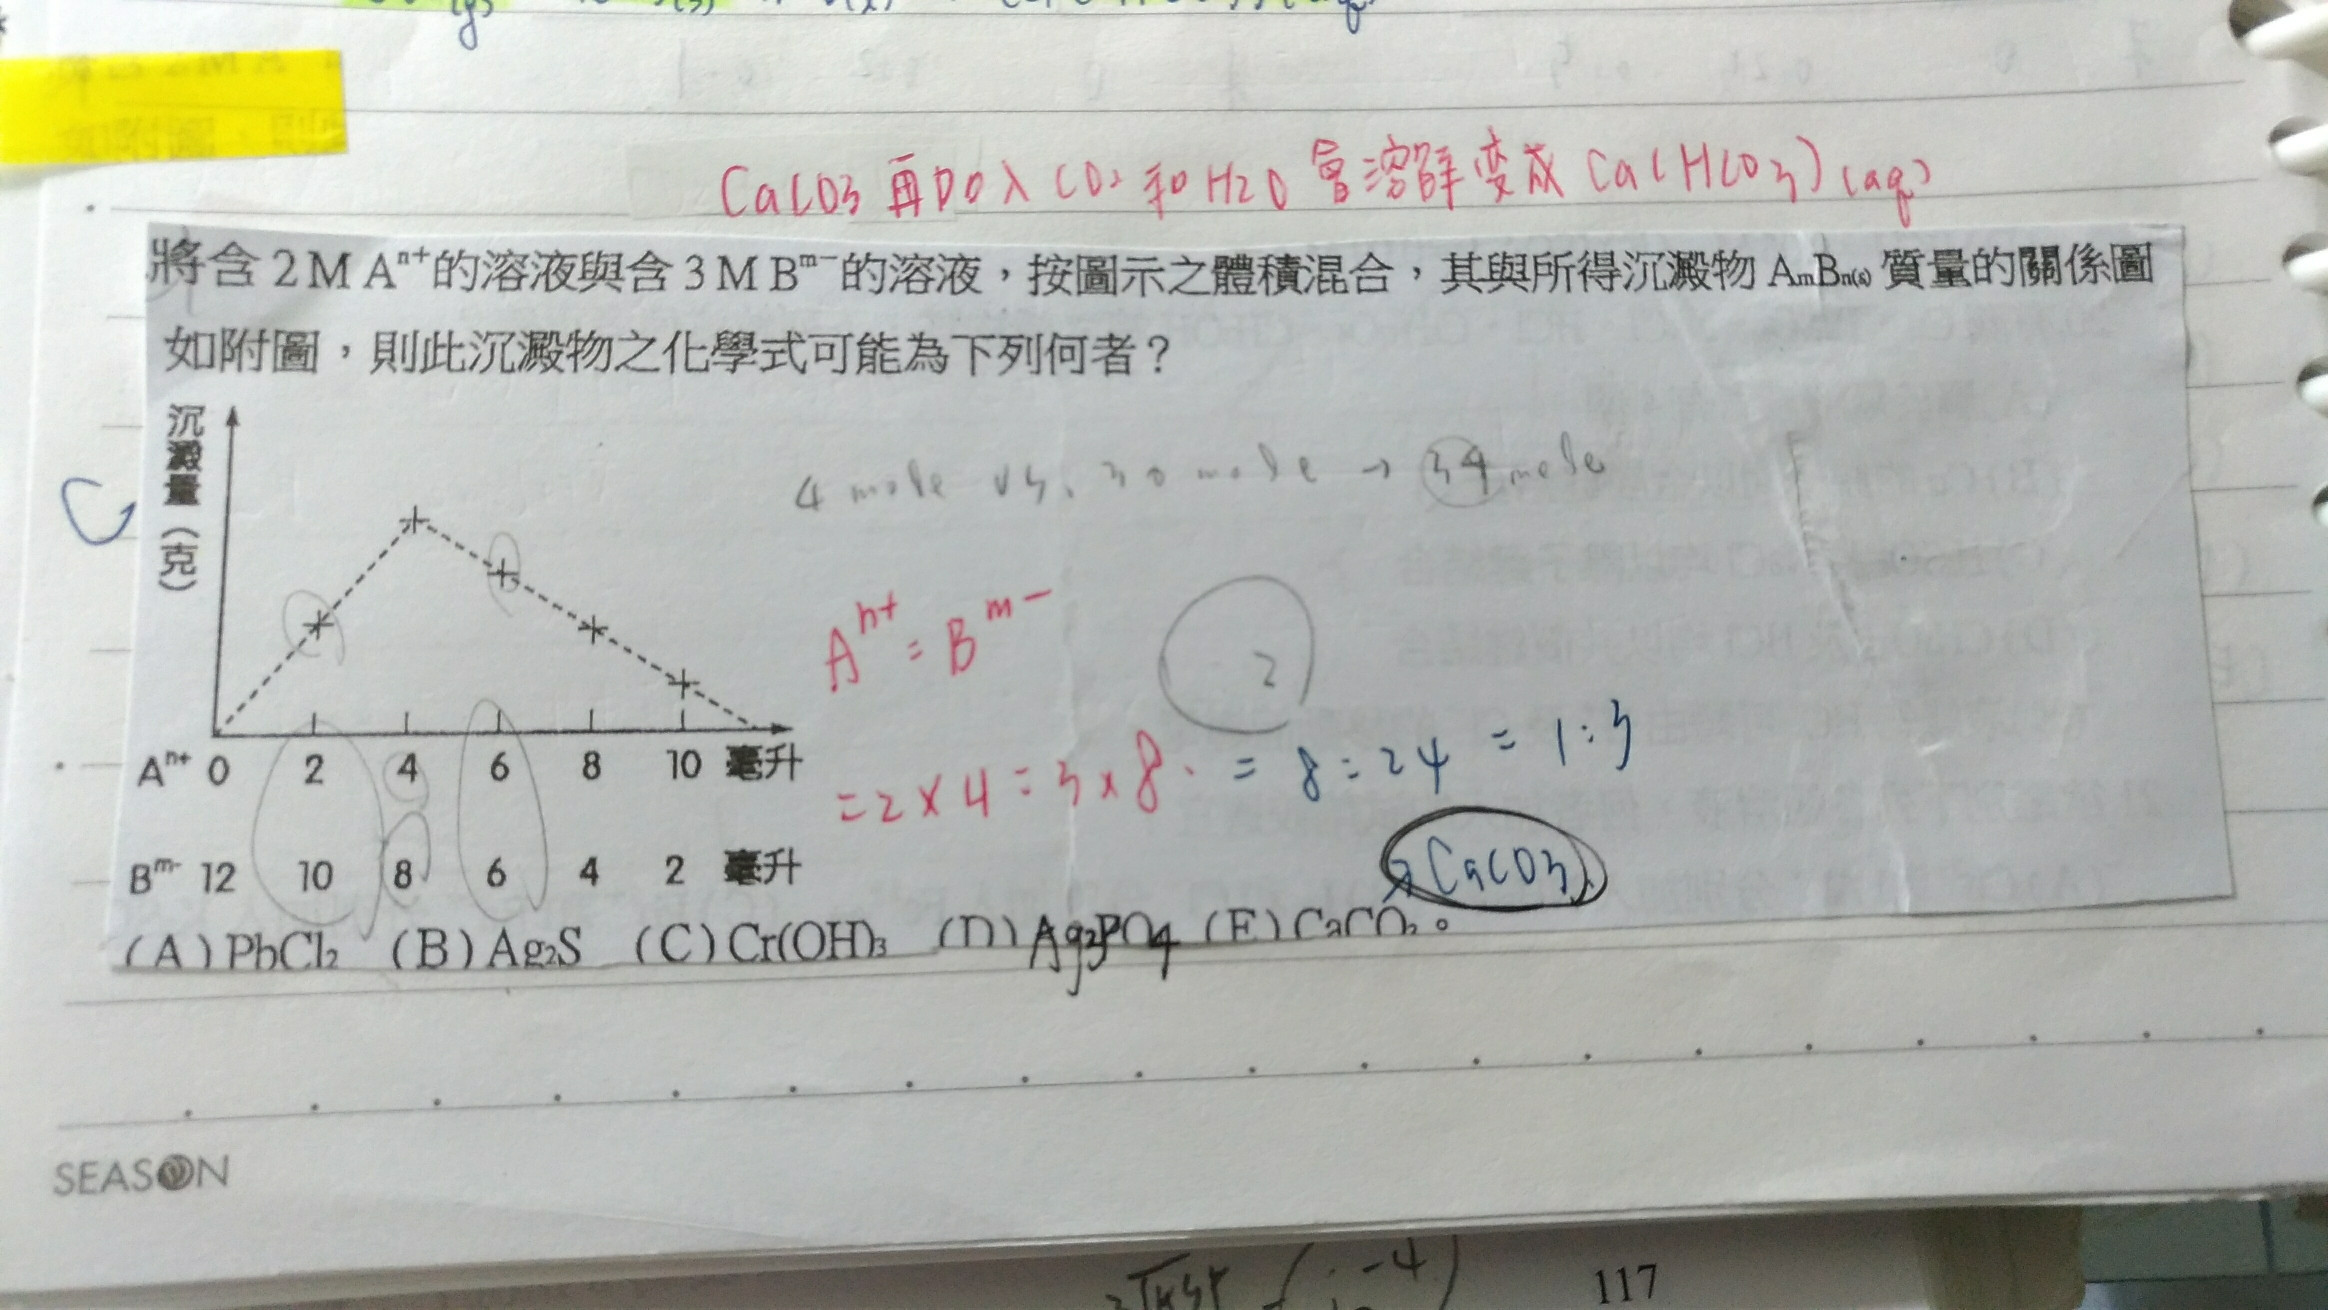 CaCO3 再加入 CO2 和 H2O 會溶解变成 Ca(HCO3)(aq)
將含 2 M Aⁿ⁺的溶液與含 3 M Bᵐ⁻的溶液，按圖示之體積混合，其與所得沉澱物 AₘBₙ₍ₛ₎ 質量的關係圖
如附圖，則此沉澱物之化學式可能為下列何者？
沉澱量（克）
4 mole vs. 30 mole → 34 mole
Aⁿ⁺ : Bᵐ⁻
2
= 2 × 4 : 3 × 8 = 8 : 24 = 1 : 3
Aⁿ⁺ 0 2 4 6 8 10 毫升
Bᵐ⁻ 12 10 8 6 4 2 毫升
CaCO3
(A) PbCl₂ (B) Ag₂S (C) Cr(OH)₃ (D) Ag3PO4 (E) CaCO₃。
SEASON
-4
117